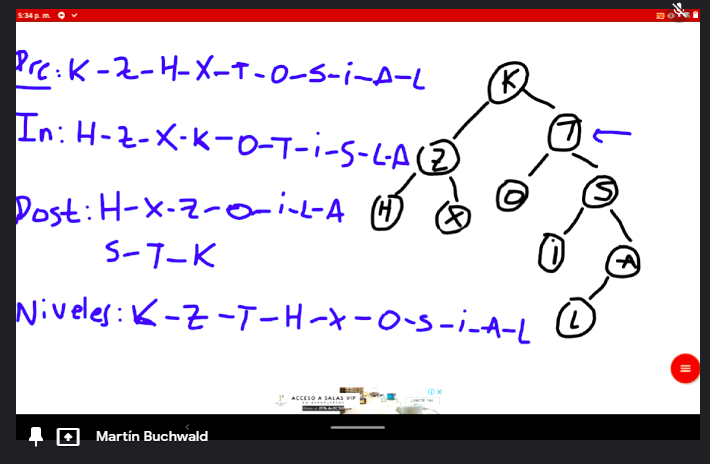 5:34 p. m.
Pre: K-Z-H-X-T-O-S-i-A-L
In: H-Z-X-K-O-T-i-S-L-A
Post: H-X-Z-O-i-L-A
S-T-K
Niveles: K-Z-T-H-X-O-S-i-A-L
K
T
Z
O
S
H
X
i
A
L
ACCESO A SALAS VIP
EN AEROPUERTOS
Martín Buchwald